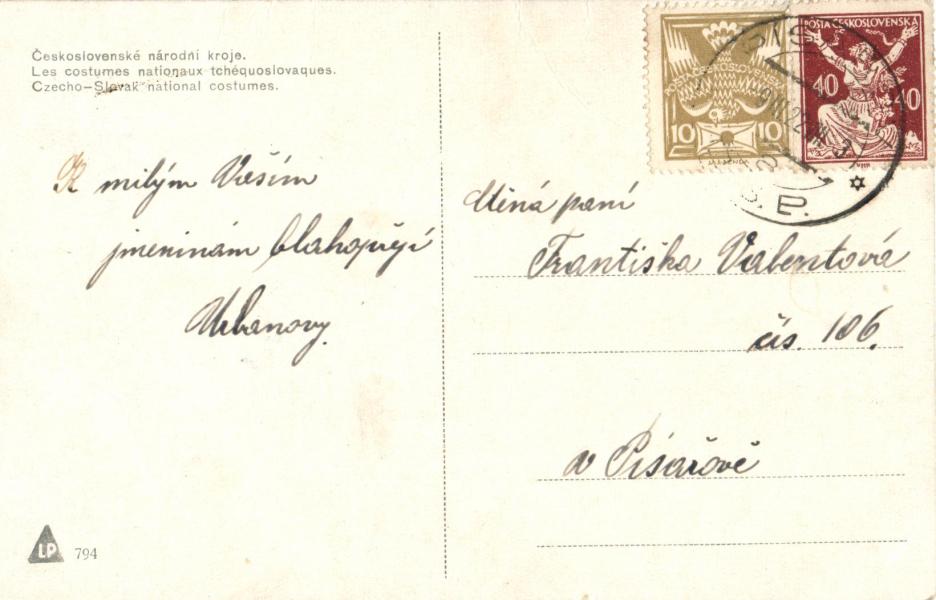 Československé národní kroje.
Les costumes nationaux tchéquoslovaques.
Czecho-Slovak national costumes.
K milým Vaším
jmeninám blahopřejí
Urbanovy.
LP 794
POŠTA ČESKOSLOVENSKÁ
10 10
POŠTA ČESKOSLOVENSKÁ
40 40
Ctěná paní
Františka Valentová
čís. 106.
v Písařově